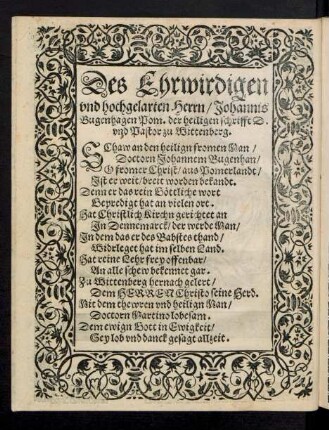 Des Ehrwirdigen
vnd hochgelarten Herrn / Johannis
Bugenhagen Pom. der heiligen schrifft D.
vnd Pastor zu Wittenberg.
SChaw an den heilign fromen Man /
Doctorn Johannem Bugenhan /
O fromer Christ / aus Pomerlandt /
Ist er weit / breit worden bekandt.
Denn er das rein Göttliche wort
Gepredigt hat an vielen ort.
Hat Christlich Kirchn gerichtet an
In Dennemarck / der werde Man /
In dem das er des Babstes thand /
Widrleget hat im selben Land.
Hat reine Lehr frey offenbar /
An alle schew bekennet gar.
Zu Wittenberg hernach gelert /
Dem HERREN Christo seine Herd.
Mit dem thewren vnd heilign Man /
Doctorn Martino lobesam.
Dem ewign Gott in Ewigkeit /
Sey lob vnd danck gesagt allzeit.